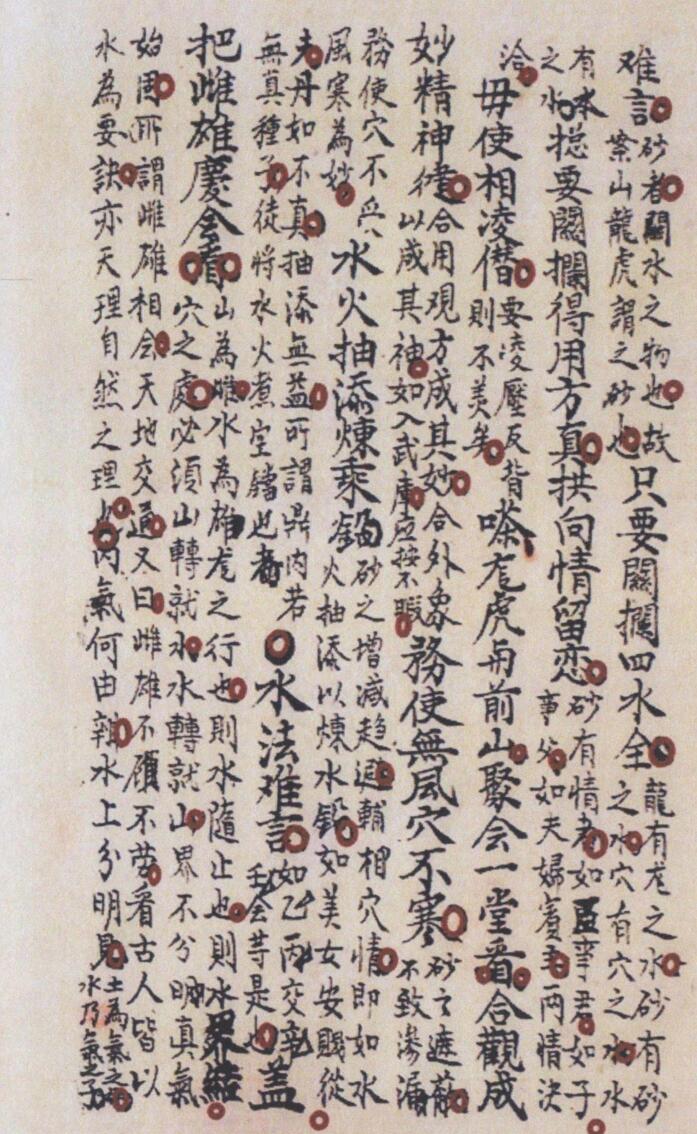 难言
砂者關水之物也故
案山龍虎謂之砂也
只要關攔四水全
龍有龙之水砂有砂
之水穴有穴之水水
有本
之水
揔要關攔得用方真拱向情留恋
砂有情者如臣事君如子
事父如夫婦賓主兩情决
洽
毋使相凌僭
要凌壓反背
則不美矣
嗏龙虎与前山聚会一堂看合觀成
妙精神健
合用观方成其妙合外象
以咸其神如入武庫应接不暇
務使無風穴不寒
砂之遮蔽
不致滲漏
務使穴不受
風寒為妙
水火抽添煉汞鉛
砂之增减趋迴輔相穴情即如水
火抽添以煉水鉛如美女安賤從
夫丹如不真抽添無益所謂鼎内若
無真種子徒將水火煮空鐺也者
水法难言
如乙丙交
会等是也
盖
把雌雄慶会看
山為雌水為雄龙之行也則水隨止也則水界結
穴之處必須山轉就水水轉就山界不分明真氣
始固所謂雌雄相会天地交通又曰雌雄不顧不劳看古人皆以
水為要訣亦天理自然之理也内氣何由辨水上分明見
土為氣之
水乃氣之子